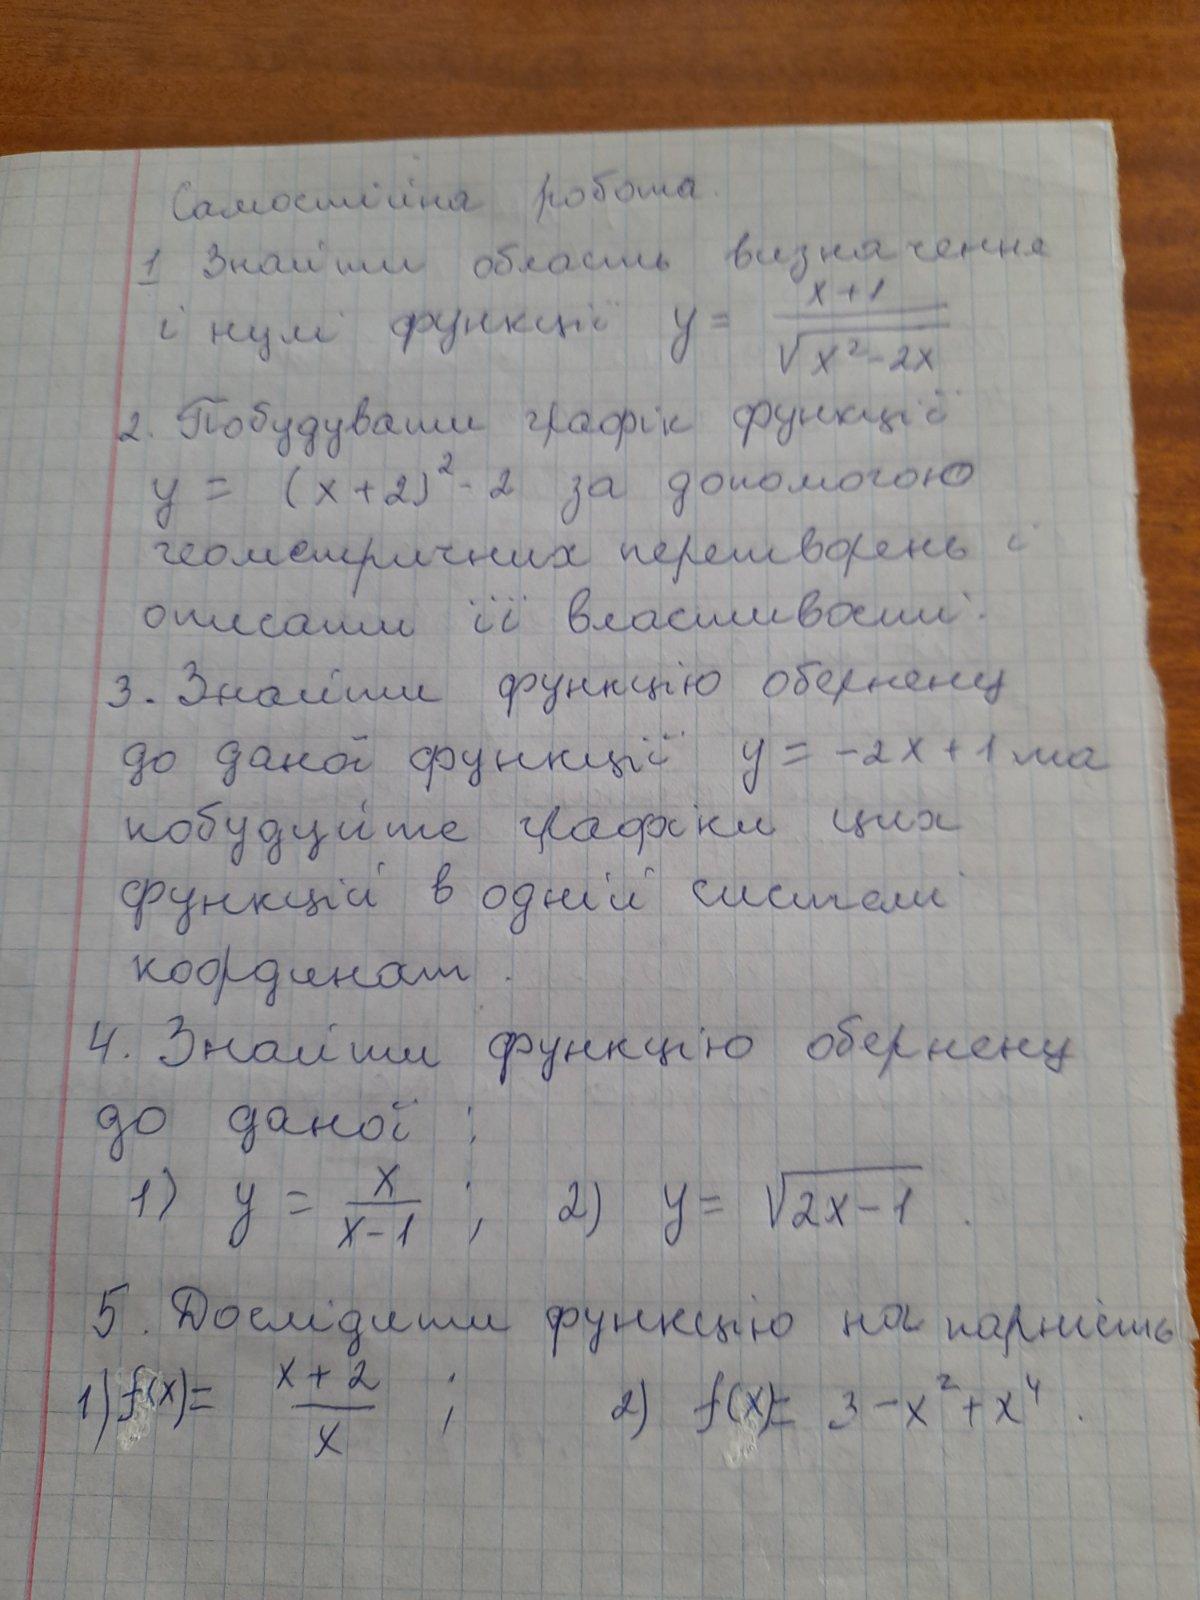 Самостійна робота.
1 Знайти область визначення
і нулі функції y = x+1 / √x²-2x
2. Побудувати графік функції
y = (x+2)² - 2 за допомогою
геометричних перетворень і
описати її властивості.
3. Знайти функцію обернену
до даної функції y = -2x+1 та
побудуйте графіки цих
функцій в одній системі
координат.
4. Знайти функцію обернену
до даної :
1) y = x / x-1 ; 2) y = √2x-1 .
5. Дослідити функцію на парність
1) f(x)= x+2 / x ; 2) f(x)= 3-x²+x⁴ .